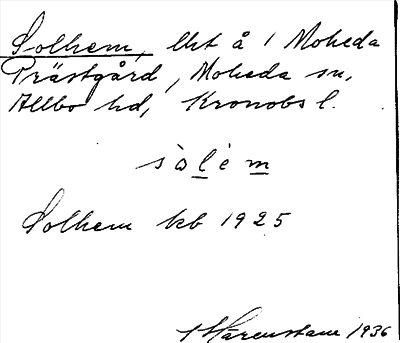 Solhem, lht å 1 Moheda
Prästgård, Moheda sn,
Allbo hd, Kronobs l.
sòlém
Solhem kb 1925
Härenstam 1936